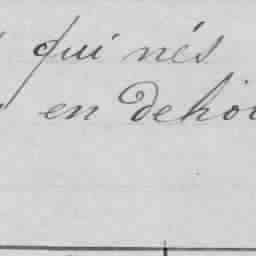 qui nés
en dehor